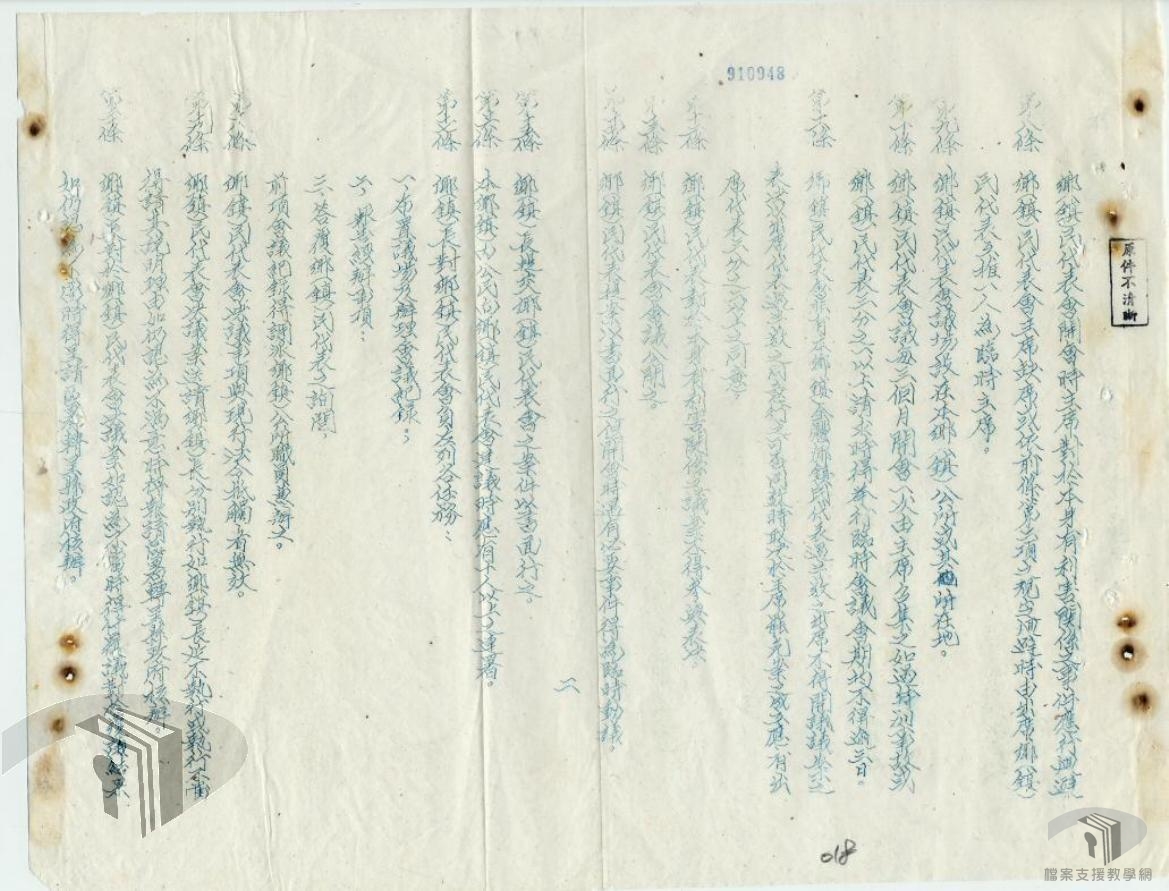 910948
原件不清晰
鄉(鎮)民代表會開會時主席對於本身有利害關係之事件應行迴避
第八條 鄉(鎮)民代表會主席缺席或依前條第二項之規定迴避時由出席鄉(鎮)
民代表互推一人為臨時主席。
第九條 鄉(鎮)民代表會議場設在本鄉(鎮)公所或其他所在地。
第十條 鄉(鎮)民代表會議每三個月開會一次由主席召集之如遇特別事故或
鄉(鎮)民代表三分之一以上請求時得舉行臨時會議會期均不得逾三日。
第十一條 鄉(鎮)民代表會非有本鄉(鎮)全體鄉鎮民代表過半數之出席不得開議議案之
表決以出席代表過半數之同意行之可否同數時取決於主席 之成立應有出
席代表三分之二以上之同意。
第十二條 鄉(鎮)民代表對於本身有利害關係之議案不得參與表決。
第十三條 鄉(鎮)民代表會會議公開之。
第十四條 鄉(鎮)民代表提案以書面行之 開會時遇有必要事件得為臨時動議。
二
第十五條 鄉(鎮)長提交鄉(鎮)民代表會之案件以書面行之。
第十六條 本鄉(鎮)內公民向鄉(鎮)民代表會建議時應有十人以上之連署。
第十七條 鄉(鎮)長對鄉(鎮)民代表會負左列各任務:
一、布置議場及辦理會議紀錄。
二、報告經辦事項。
三、答覆鄉(鎮)民代表之詢問。
前項會議紀錄得調派鄉(鎮)公所職員兼辦之。
第十八條 鄉(鎮)民代表會決議事項與現行法令抵觸者無效。
第十九條 鄉(鎮)民代表會決議案送請鄉(鎮)長分別執行如鄉(鎮)長延不執行或執行不當
得請其說明理由如仍認為不滿意時得報請區署轉呈縣政府核辦。
第二十條 鄉(鎮)長對於鄉(鎮)民代表會之議案如認為不當時得 復議對於復議結果
如仍認為不當時得呈請區署轉呈縣政府核辦。
018
檔案支援教學網